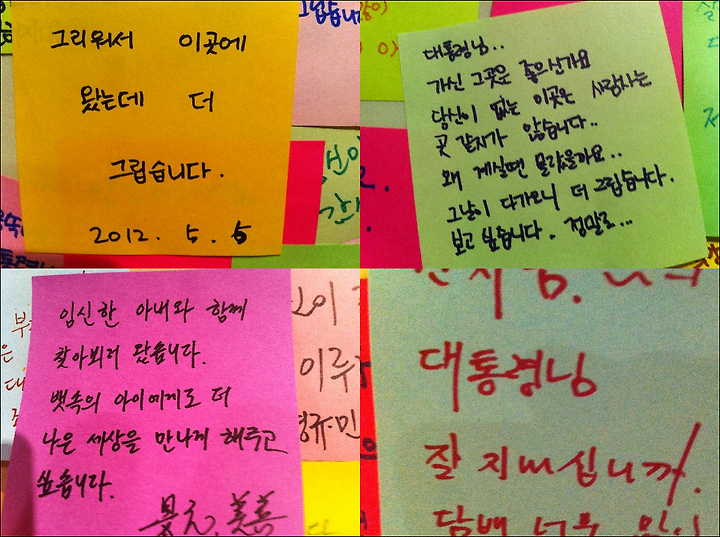 그리워서 이곳에
왔는데 더
그립습니다.
2012. 5. 5
대통령님..
가신 그곳은 좋으신가요
당신이 없는 이곳은 사람사는
곳 같지가 않습니다..
왜 계실땐 몰랐을까요..
그날이 다가오니 더 그립습니다.
보고 싶습니다. 정말로...
임신한 아내와 함께
찾아뵈러 왔습니다.
뱃속의 아이에게도 더
나은 세상을 만나게 해주고
싶습니다.
대통령님
잘 지내십니까.
담배 너무